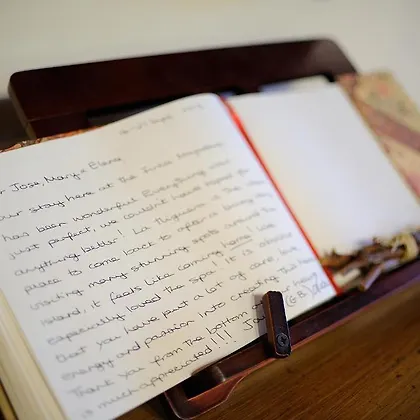 Sept
Dear Jose, Mary + Elaine
our stay here at the
has been wonderful. Everything was
just perfect, we couldn't have hoped for
anything better! La is the ideal
place to come back to after a
visiting many stunning spots around the
island, it feels like coming home! We
especially loved the spa! It is obvious
that you have put a lot of care, love
energy and passion into creating this
Thank you from the bottom of our hearts
is much appreciated!!! (GB)